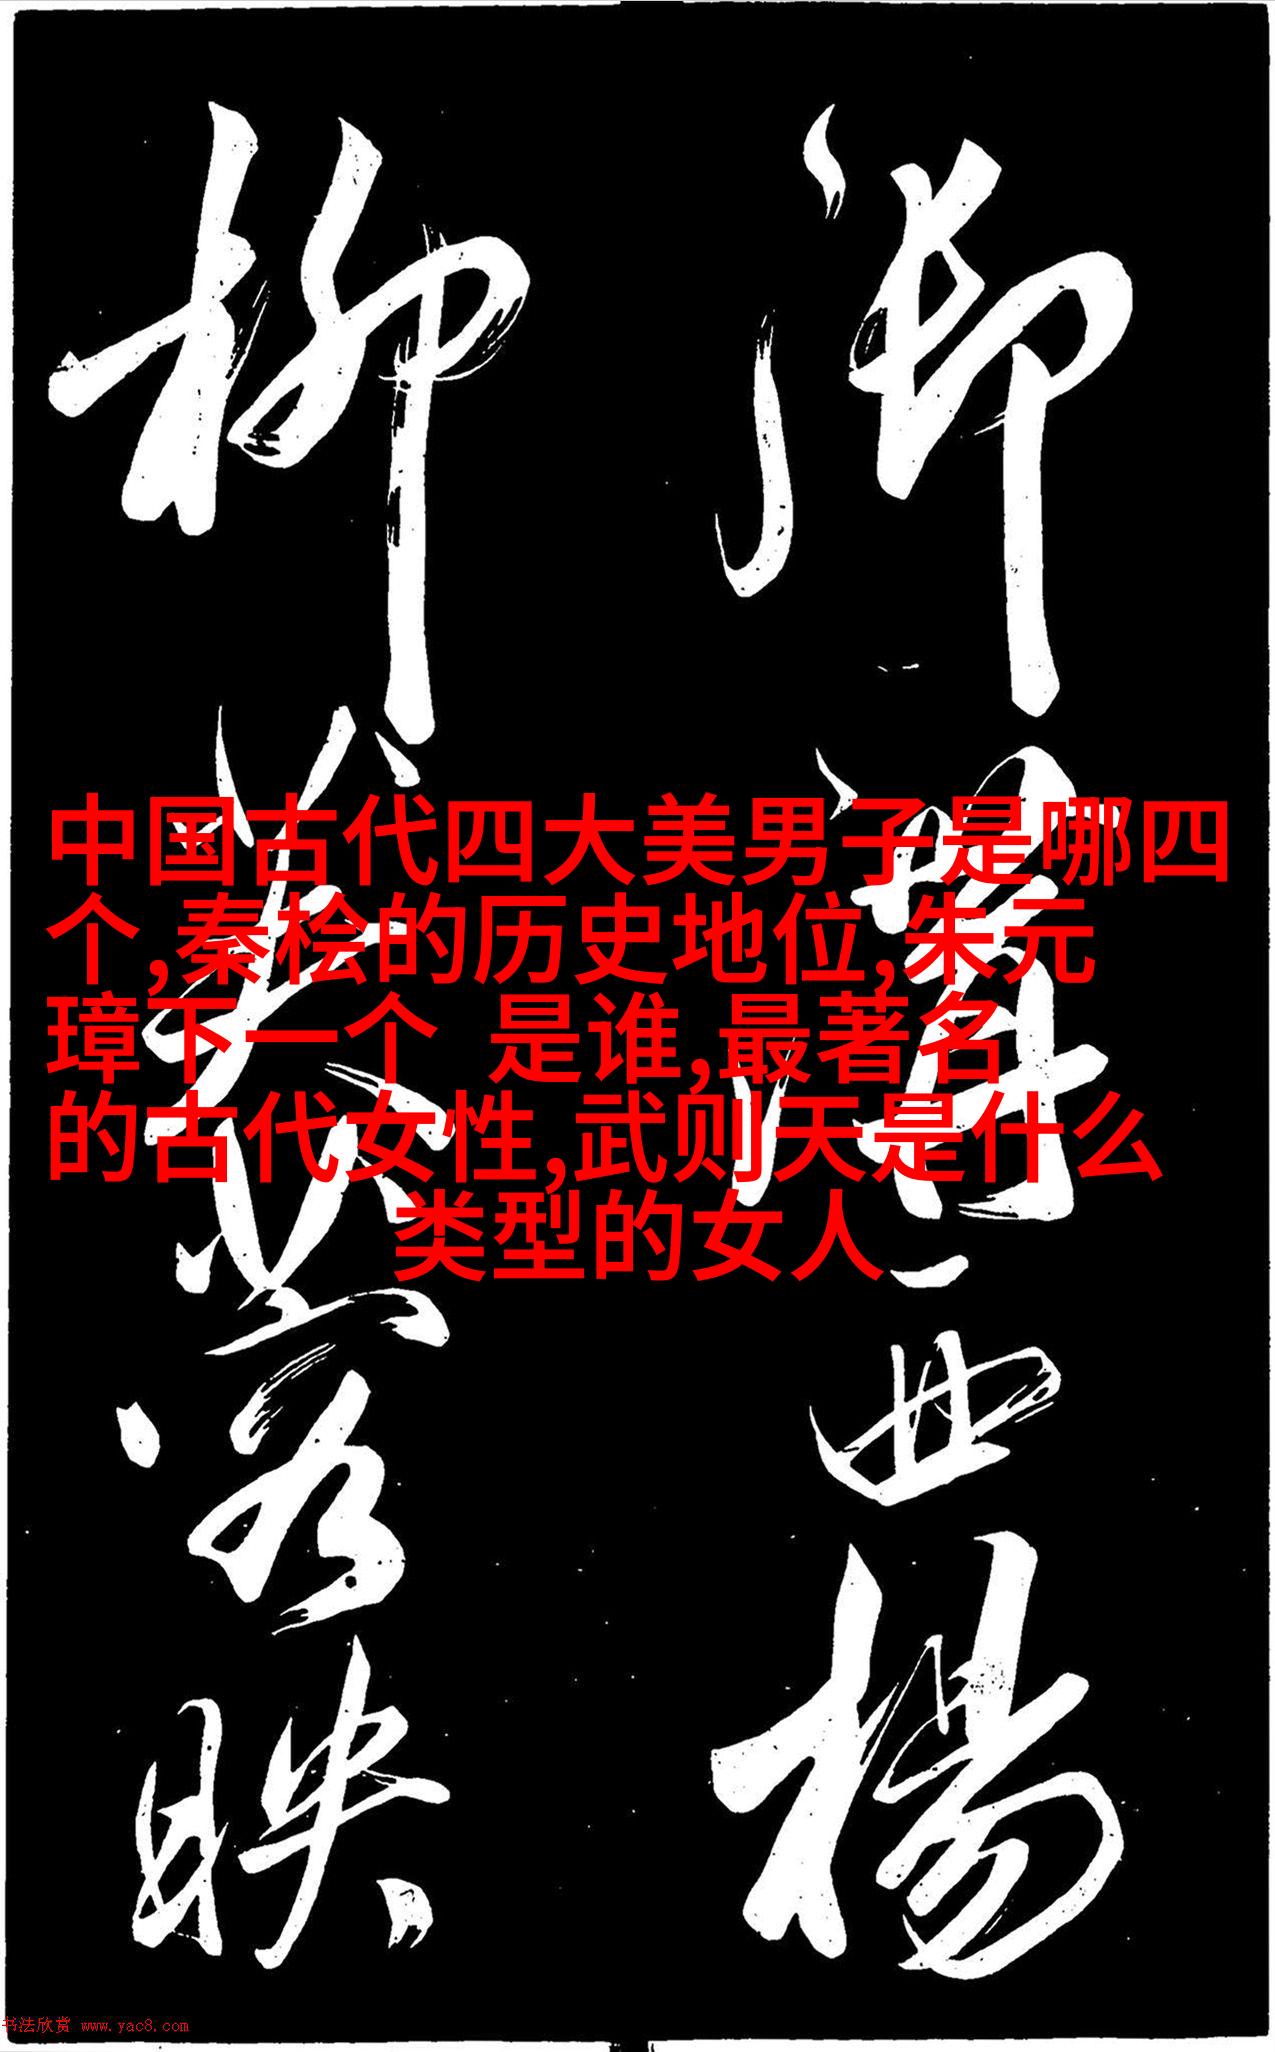 中国古代四大美男子是哪四
个,秦桧的历史地位,朱元
璋下一个 是谁,最著名
的古代女性,武则天是什么
类型的女人
西杨
柳
映
书法欣赏 www.yac8.com